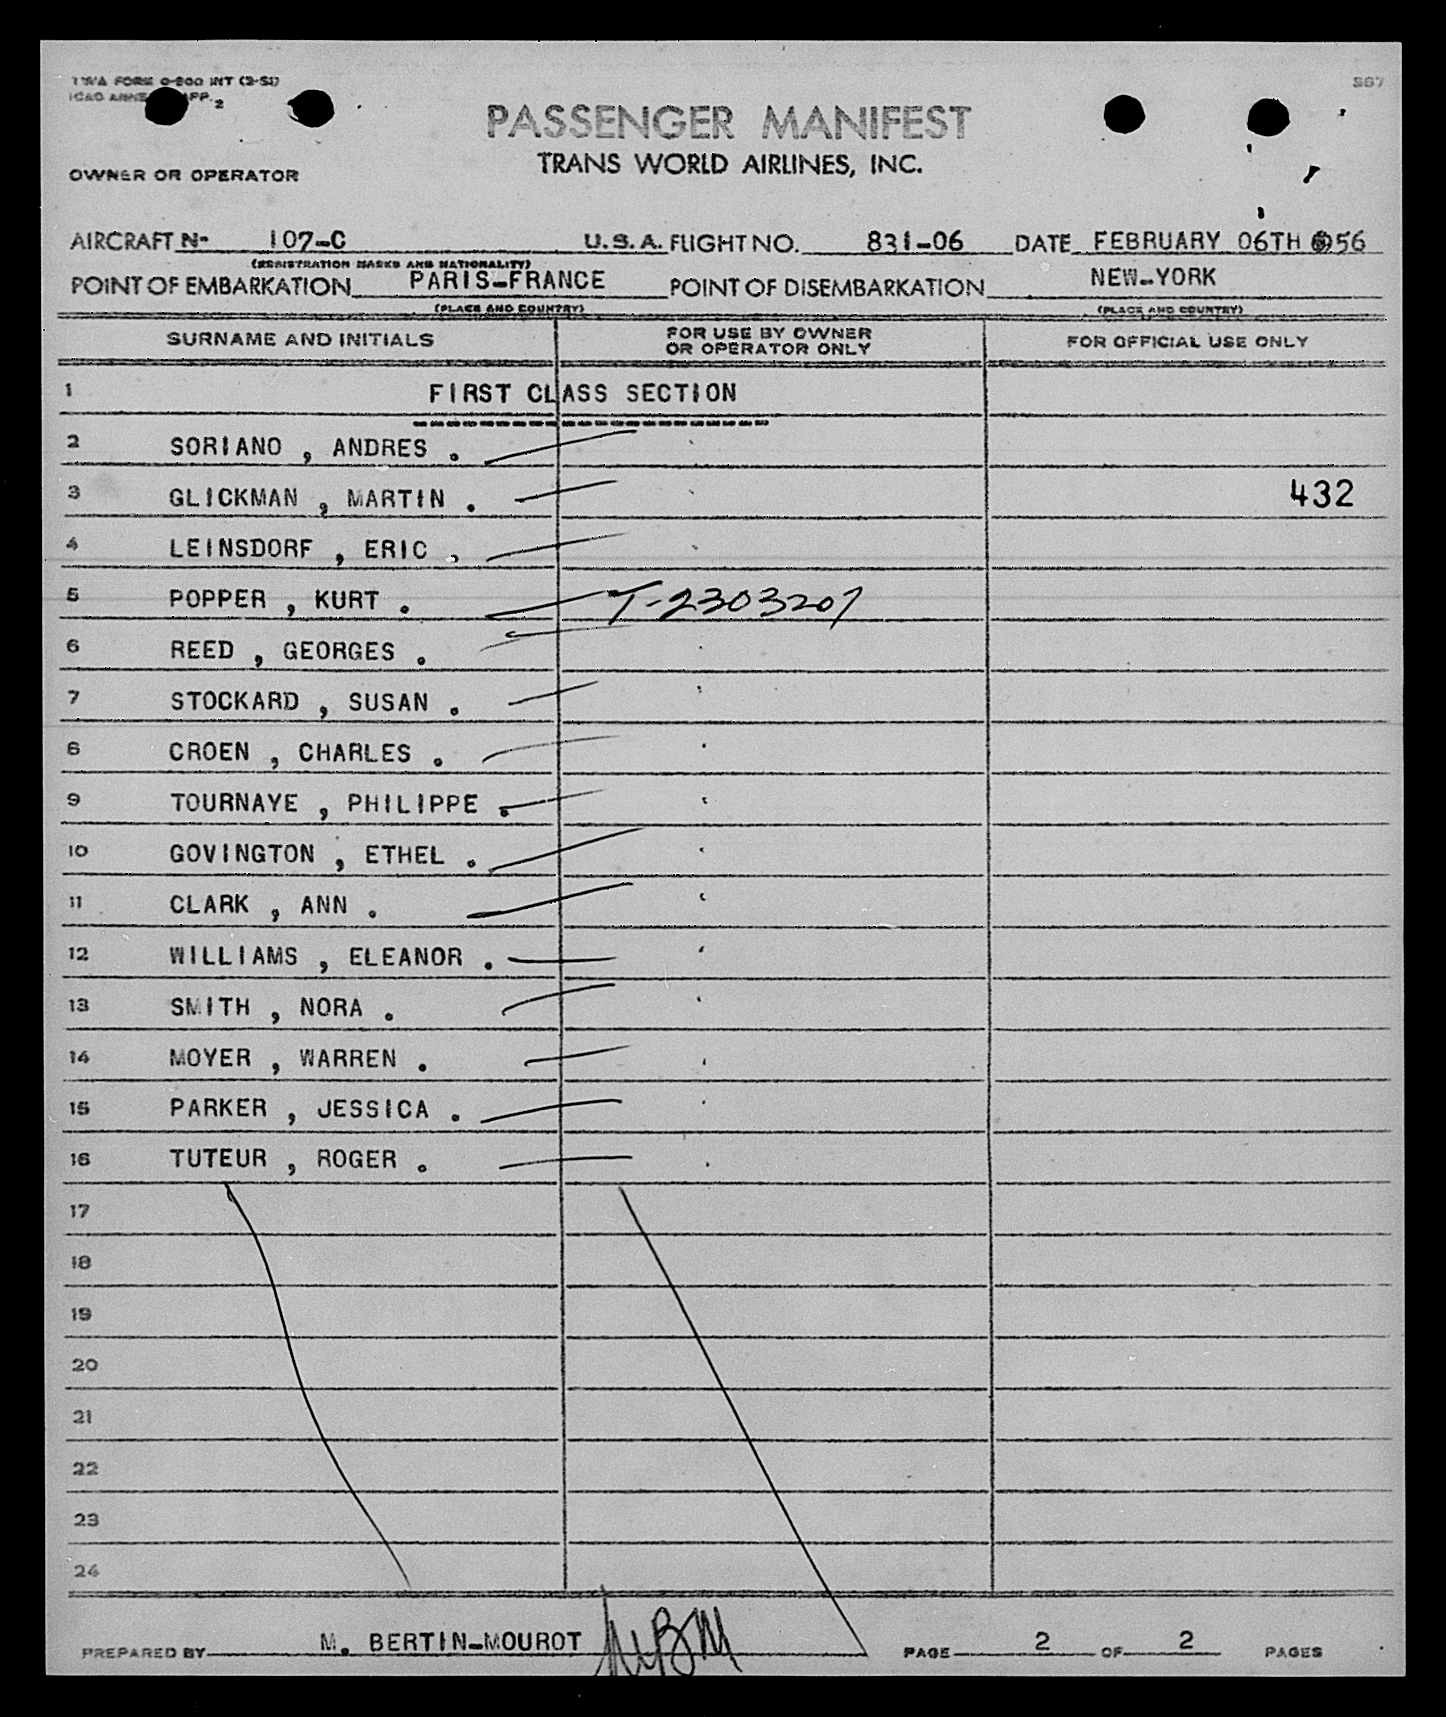 TWA FORM 0-200 INT (2-51)
ICAO ANNE APP. 2
567
PASSENGER MANIFEST
TRANS WORLD AIRLINES, INC.
OWNER OR OPERATOR
AIRCRAFT N- 107-C U.S.A. FLIGHT NO. 831-06 DATE FEBRUARY 06TH 56
(REGISTRATION MARKS AND NATIONALITY)
POINT OF EMBARKATION PARIS-FRANCE POINT OF DISEMBARKATION NEW-YORK
(PLACE AND COUNTRY) (PLACE AND COUNTRY)
SURNAME AND INITIALS FOR USE BY OWNER OR OPERATOR ONLY FOR OFFICIAL USE ONLY
1 FIRST CLASS SECTION
2 SORIANO , ANDRES .
3 GLICKMAN , MARTIN . 432
4 LEINSDORF , ERIC .
5 POPPER , KURT . T-2303207
6 REED , GEORGES .
7 STOCKARD , SUSAN .
8 CROEN , CHARLES .
9 TOURNAYE , PHILIPPE .
10 GOVINGTON , ETHEL .
11 CLARK , ANN .
12 WILLIAMS , ELEANOR .
13 SMITH , NORA .
14 MOYER , WARREN .
15 PARKER , JESSICA .
16 TUTEUR , ROGER .
17
18
19
20
21
22
23
24
PREPARED BY M. BERTIN-MOUROT MBM PAGE 2 OF 2 PAGES